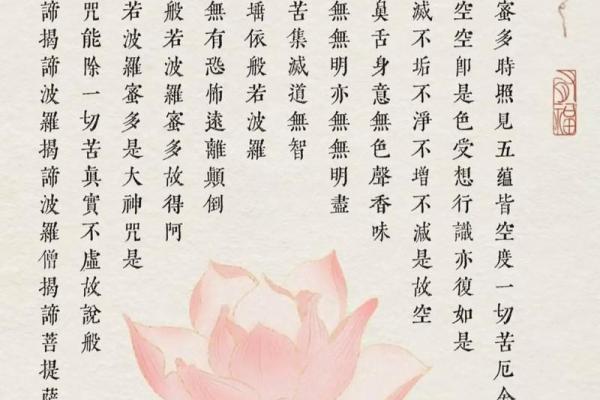 蜜多時照見五蘊皆空度一切苦厄舍
空空卽是色受想行識亦復如是
滅不垢不淨不增不減是故空
鼻舌身意無色聲香味
無無明亦無無明盡
苦集滅道無智
埵依般若波羅
無有恐怖遠離顛倒
般若波羅蜜多故得阿
若波羅蜜多是大神咒是
咒能除一切苦眞實不虛故說般
諦揭諦波羅揭諦波羅僧揭諦菩提薩
有福